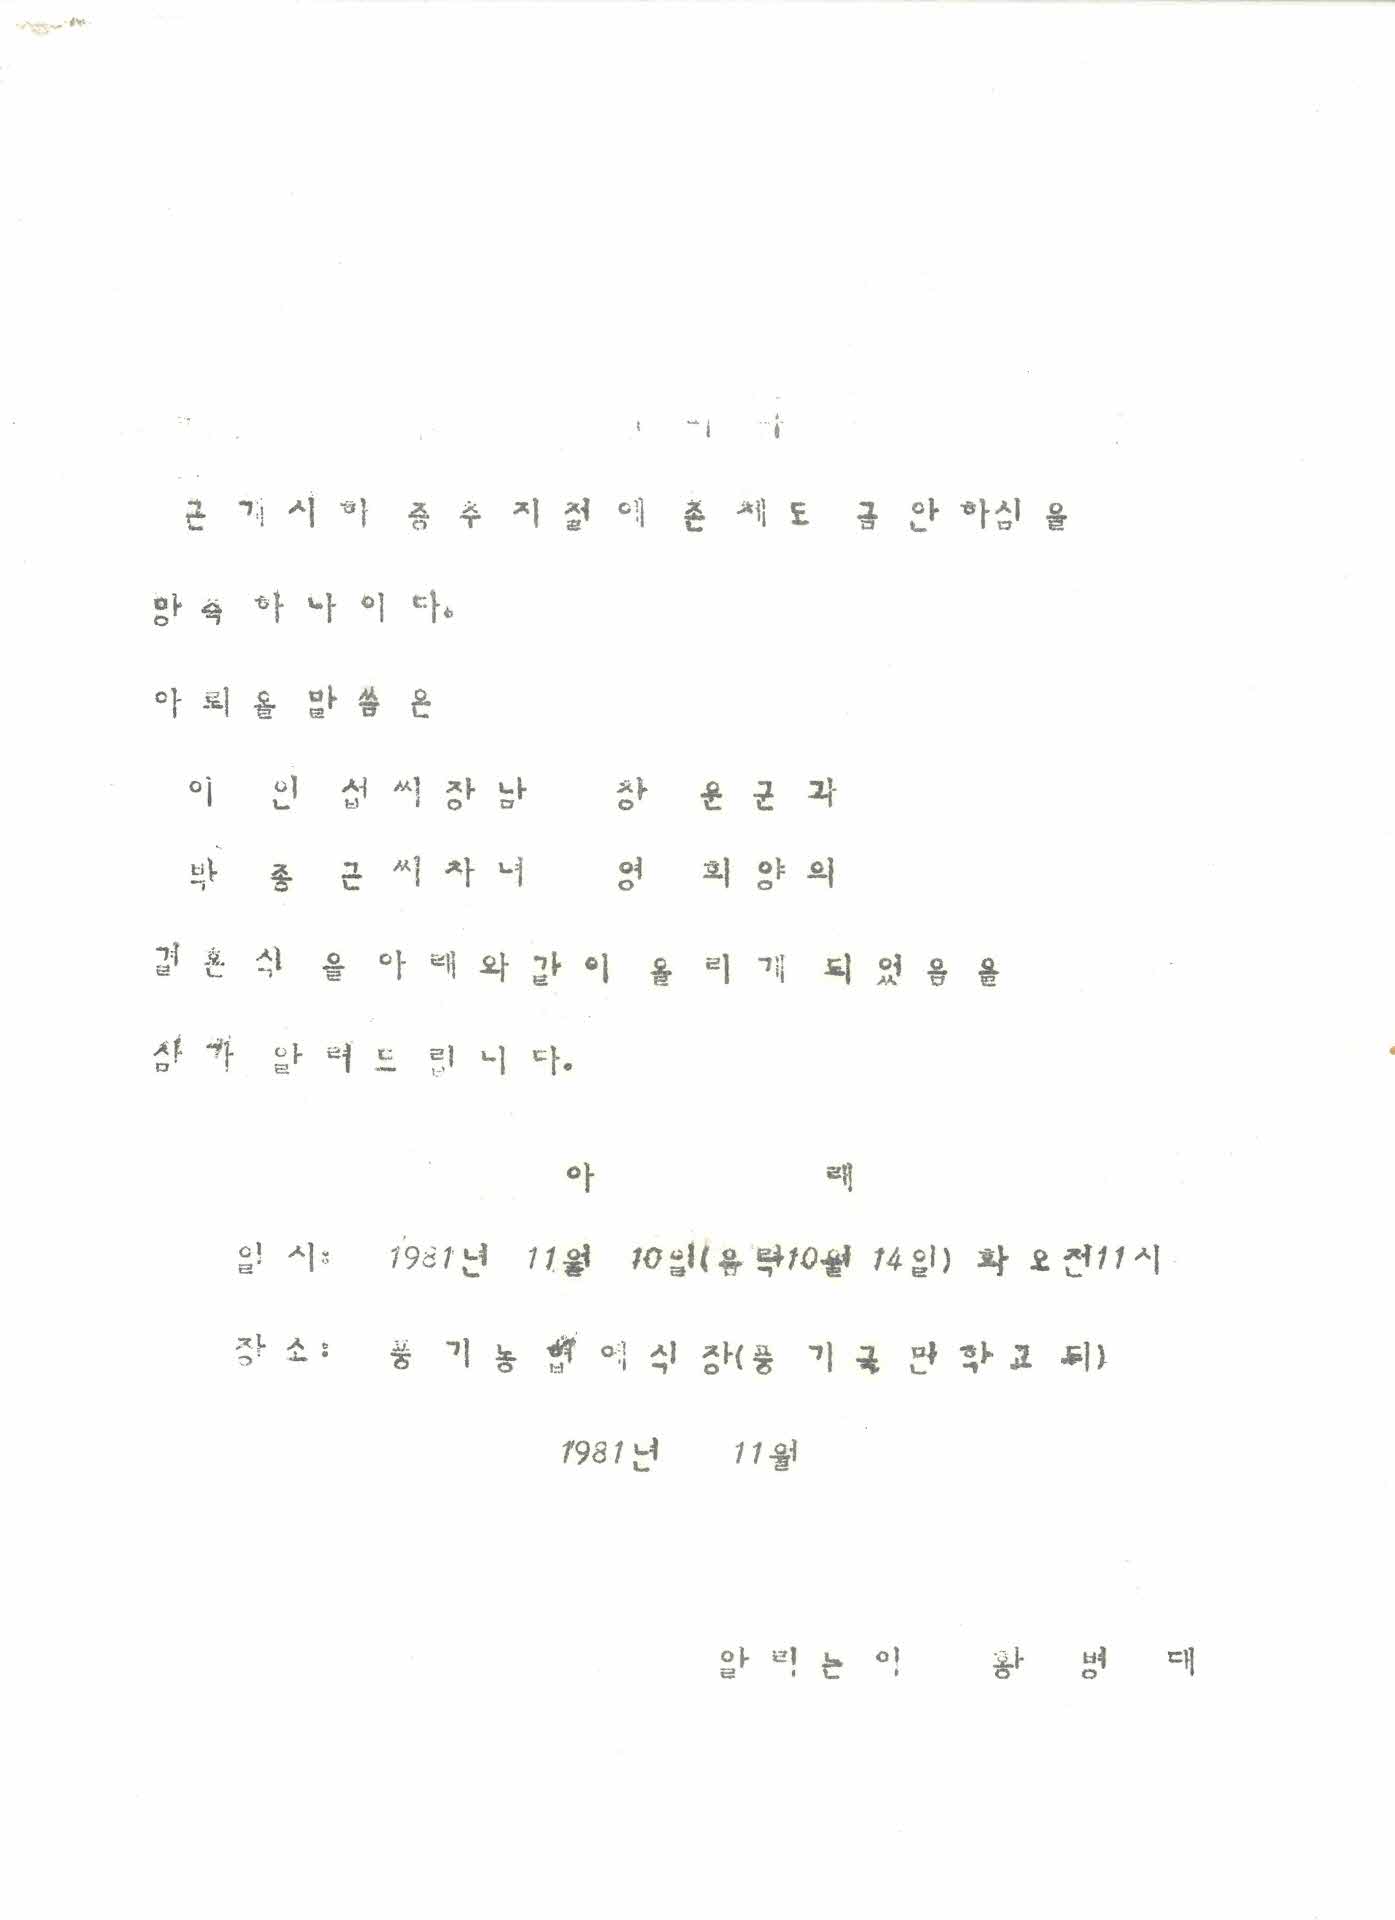 근계시하 중추지절에 존체도 금안하심을
망축하나이다.
아뢰올말씀은
이 인 섭씨장남 창 운군과
박 종 근씨차녀 영 희양의
결혼식을 아래와같이 올리게 되었음을
삼가 알려드립니다.
아 래
일시: 1981년 11월 10일(음력10월 14일) 화 오전11시
장소: 풍기농협예식장(풍기국민학교뒤)
1981년 11월
알리는이 황 병 대